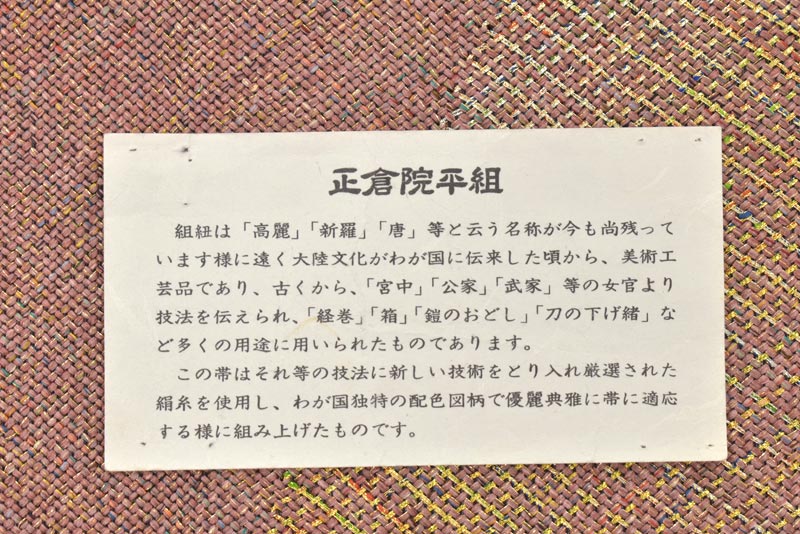 正倉院平組
組紐は「高麗」「新羅」「唐」等と云う名称が今も尚残って
います様に遠く大陸文化がわが国に伝来した頃から、美術工
芸品であり、古くから、「宮中」「公家」「武家」等の女官より
技法を伝えられ、「経巻」「箱」「鎧のおどし」「刀の下げ緒」な
ど多くの用途に用いられたものであります。
この帯はそれ等の技法に新しい技術をとり入れ厳選された
絹糸を使用し、わが国独特の配色図柄で優麗典雅に帯に適応
する様に組み上げたものです。